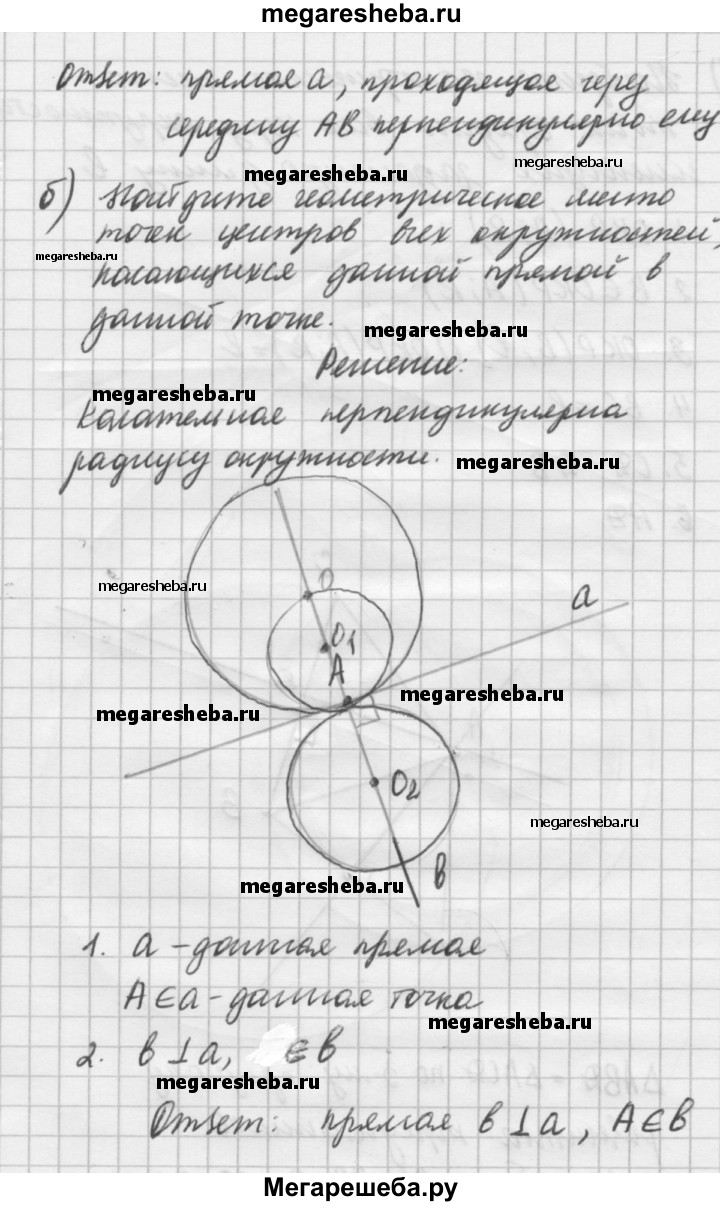 megaresheba.ru
Ответ: прямая a, проходящая через
середину AB перпендикулярно ему
megaresheba.ru
megaresheba.ru
б) Найдите геометрическое место
точек центров всех окружностей,
megaresheba.ru
касающихся данной прямой в
данной точке.
megaresheba.ru
Решение:
megaresheba.ru
Касательная перпендикулярна
радиусу окружности.
megaresheba.ru
O
megaresheba.ru
a
O1
A
megaresheba.ru
megaresheba.ru
O2
megaresheba.ru
megaresheba.ru
b
1. a - данная прямая
A∈a - данная точка
megaresheba.ru
2. b⊥a, ∈b
megaresheba.ru
Ответ: прямая b⊥a, A∈b
Мегарешеба.ру